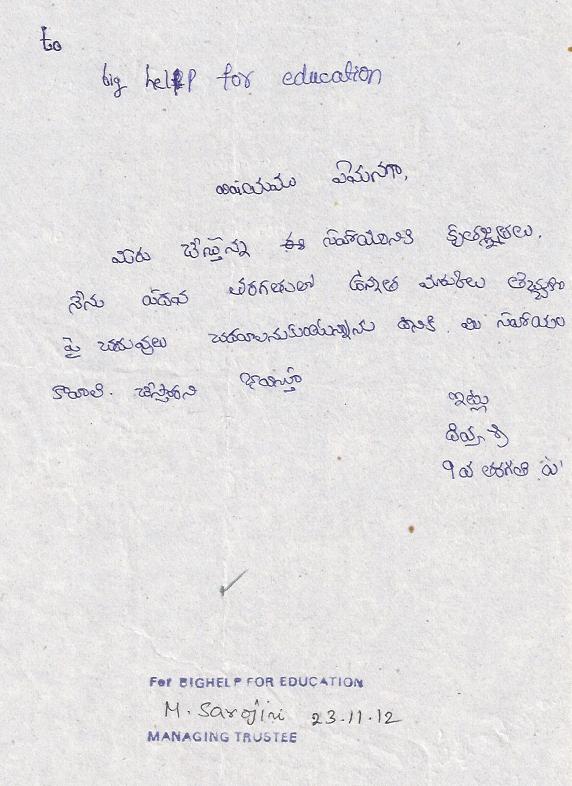 to
big help for education
విషయము ఏమనగా,
మీరు చేస్తున్న ఈ సహాయానికి కృతజ్ఞతలు.
నేను పదవ తరగతులో ఉన్నత మారుకులు తెచ్చుకొని
పై చదువులు చదవాలనుకుంటున్నాను దానికి. మీ సహాయం
కావాలి. చేస్తారని భావిస్తూ
ఇట్లు
దివ్య శ్రీ
9వ తరగతి
For BIGHELP FOR EDUCATION
M. Sarojini 23.11.12
MANAGING TRUSTEE